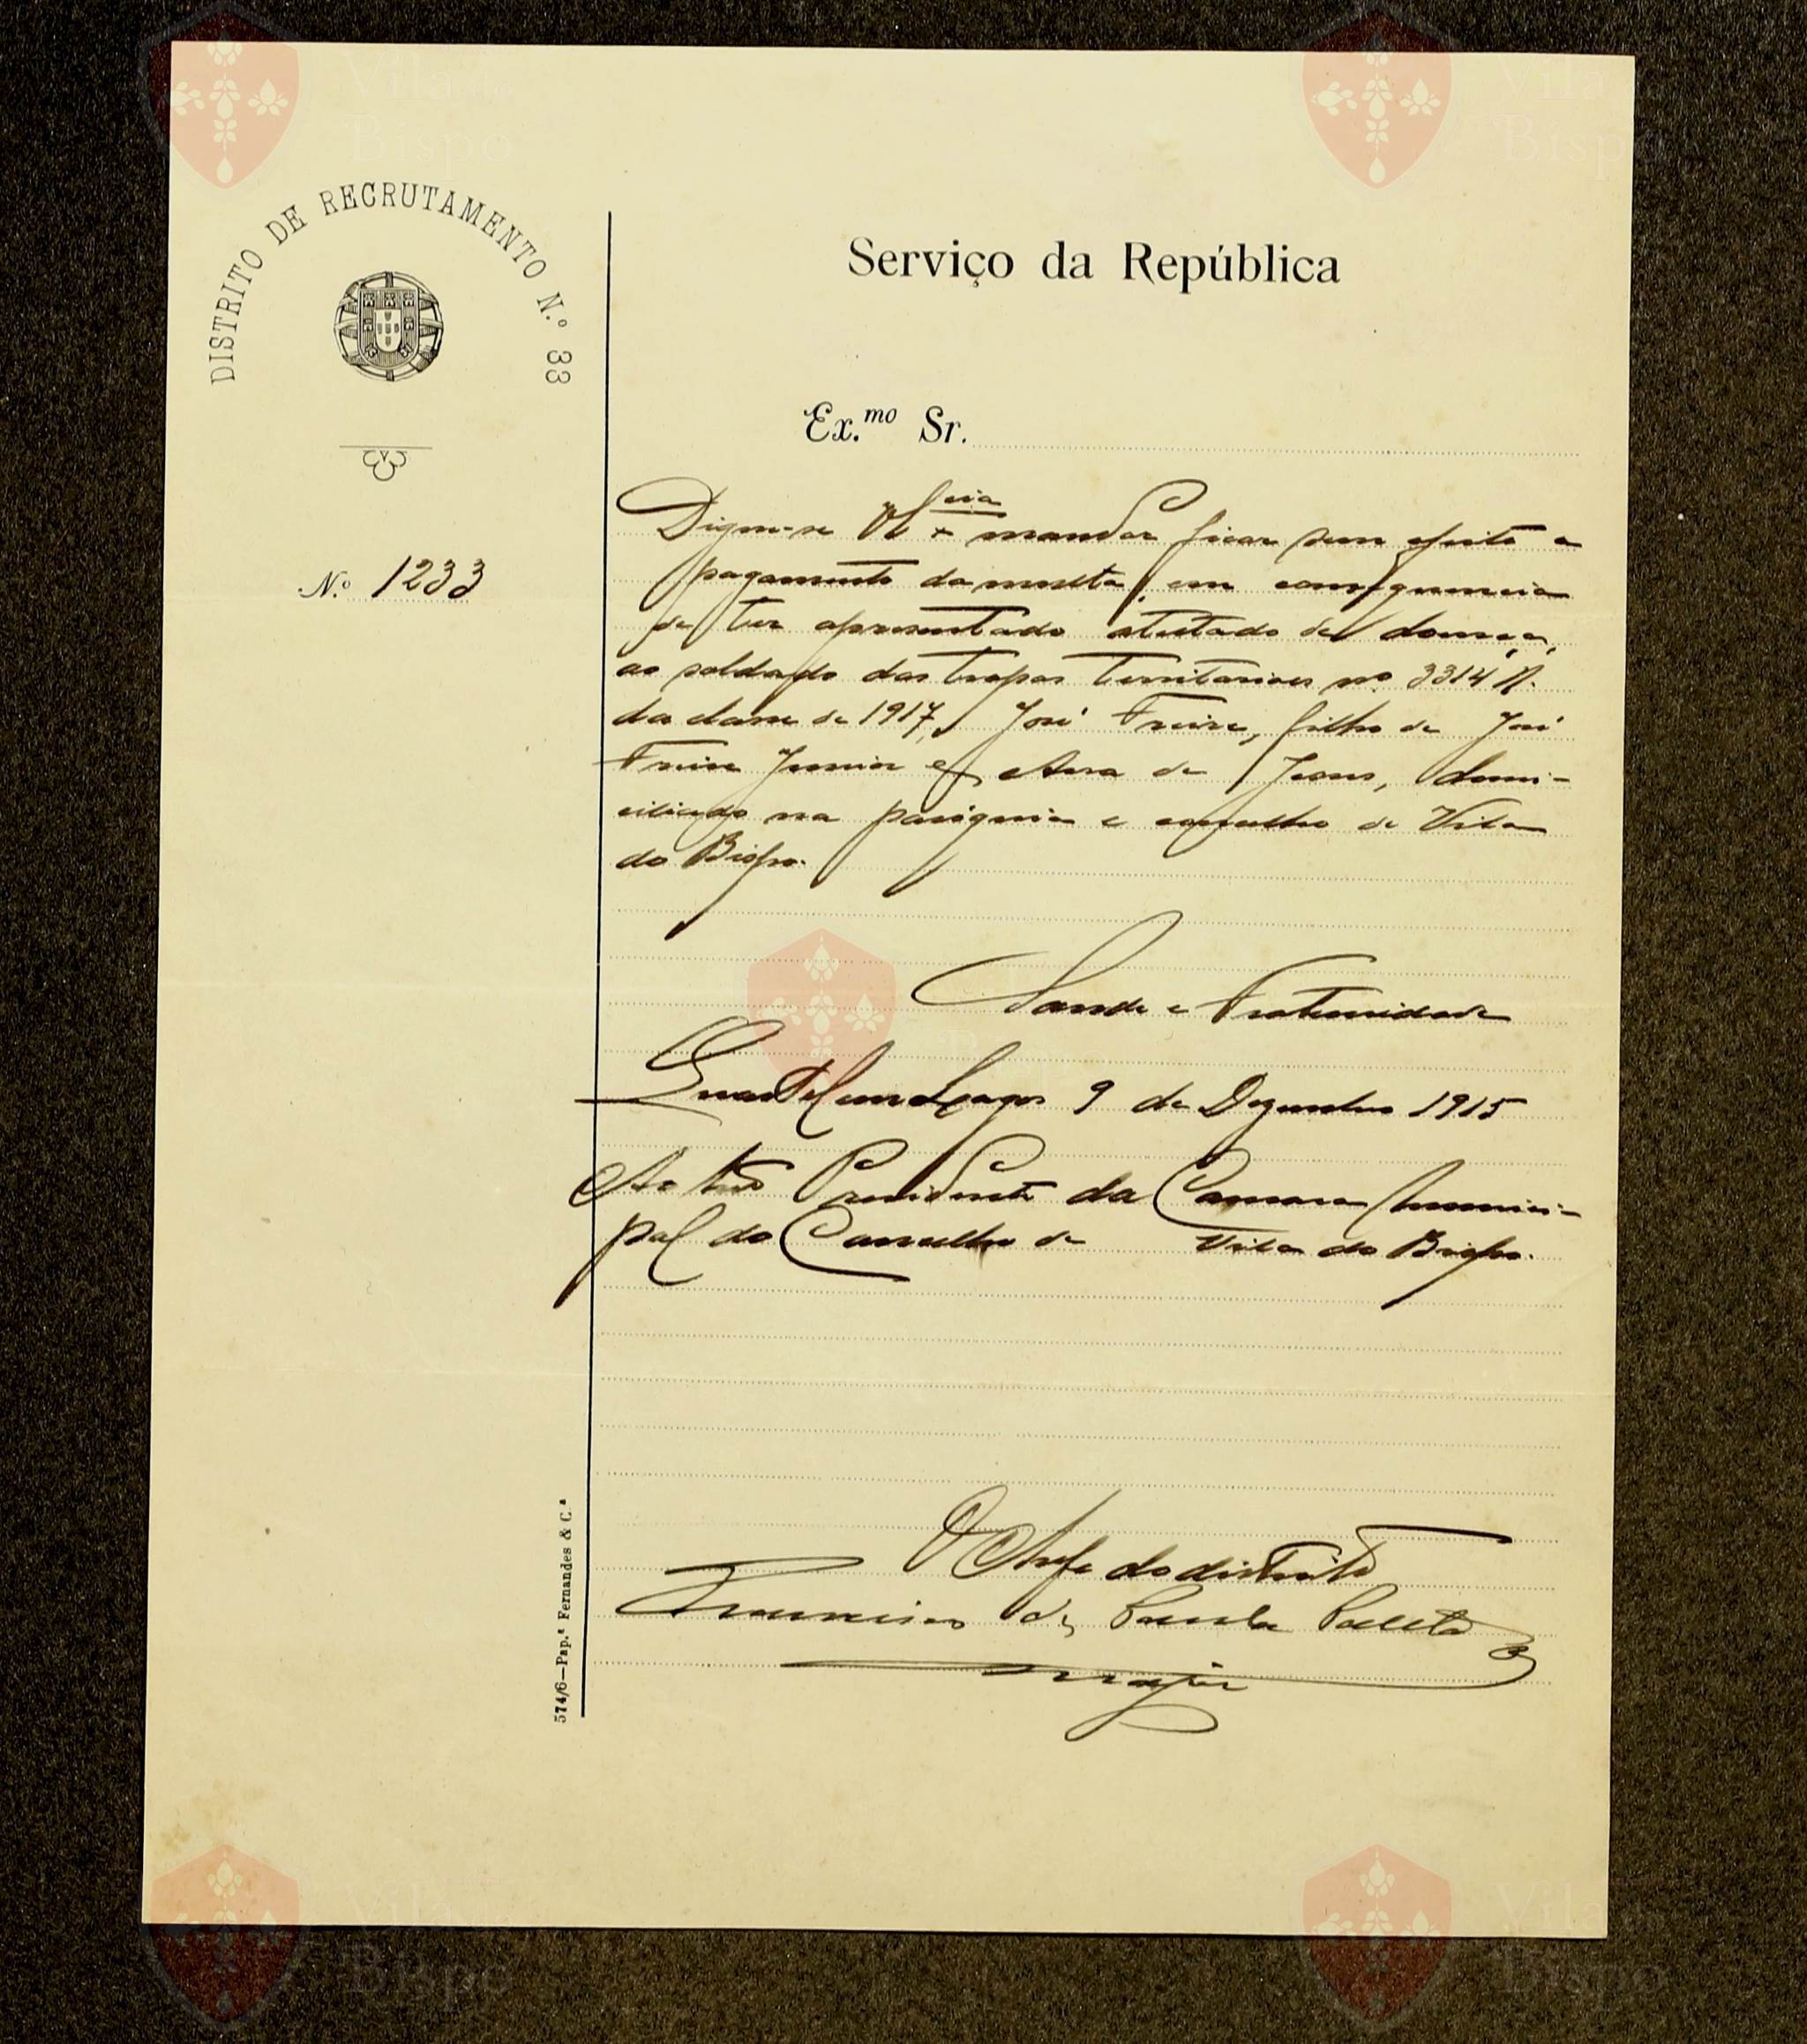 DISTRITO DE RECRUTAMENTO N.º 33
Serviço da República
Ex.mo Sr.
Nº 1233
Digne-se V Ex.cia mandar ficar sem efeito o
pagamento da multa, em consequencia
de ter apresentado atestado de doença,
ao soldado das tropas territoriaes nº 3314 A.
da classe de 1917, José Freire, filho de José
Freire Junior e Ana de Jesus, domi-
ciliado na paroquia e conselho de Vila
do Bispo.
Saude e Fraternidade
Quartel em Lagos 9 de Dezembro 1915
Ao Presidente da Camara Munici-
pal do Conselho de Vila do Bispo.
O Chefe do distrito
Francisco de Paula
major
574/6—Pap.ª Fernandes & C.ª
Vila do
Bispo
Vila
Bispo
Vila
Bispo
Vila
Bispo